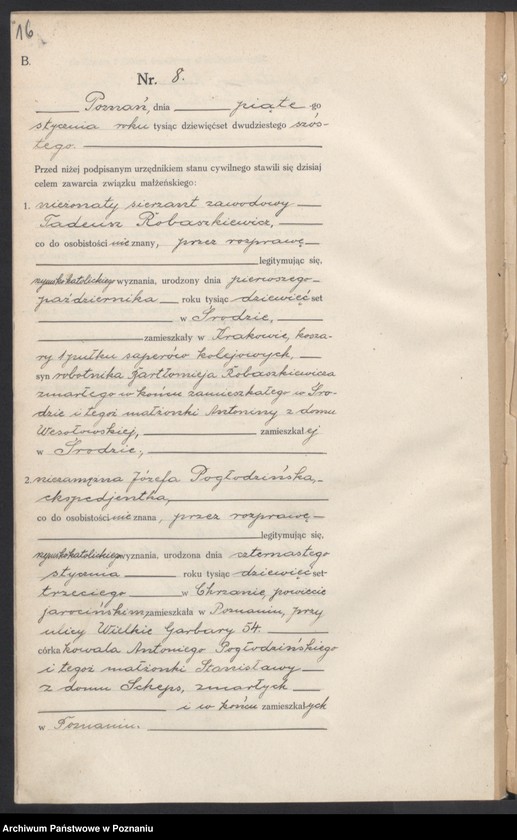 16
B.
Nr. 8.
Poznań, dnia piąte-go
stycznia roku tysiąc dziewięćset dwudziestego szós-
tego.
Przed niżej podpisanym urzędnikiem stanu cywilnego stawili się dzisiaj
celem zawarcia związku małżeńskiego:
1. nieżonaty sierżant zawodowy
Tadeusz Robaszkiewicz,
co do osobistości nie znany, przez rozprawę
legitymując się,
rzymskokatolickiego wyznania, urodzony dnia pierwszego
października roku tysiąc dziewięćset
w Środzie,
zamieszkały w Krakowie, kosza-
ry 1 pułku saperów kolejowych,
syn robotnika Bartłomieja Robaszkiewicza
zmarłego w końcu zamieszkałego w Śro-
dzie i tegoż małżonki Antoniny z domu
Wesołowskiej, zamieszkałej
w Środzie,
2. niezamężna Józefa Pogłodzińska,
ekspedjentka,
co do osobistości nie znana, przez rozprawę
legitymując się,
rzymskokatolickiego wyznania, urodzona dnia czternastego
stycznia roku tysiąc dziewięćset
trzeciego w Chrzanie, powiecie
jarocińskim, zamieszkała w Poznaniu, przy
ulicy Wielkie Garbary 54.
córka kowala Antoniego Pogłodzińskiego
i tegoż małżonki Stanisławy
z domu Scheps, zmarłych
i w końcu zamieszkałych
w Poznaniu.
Archiwum Państwowe w Poznaniu